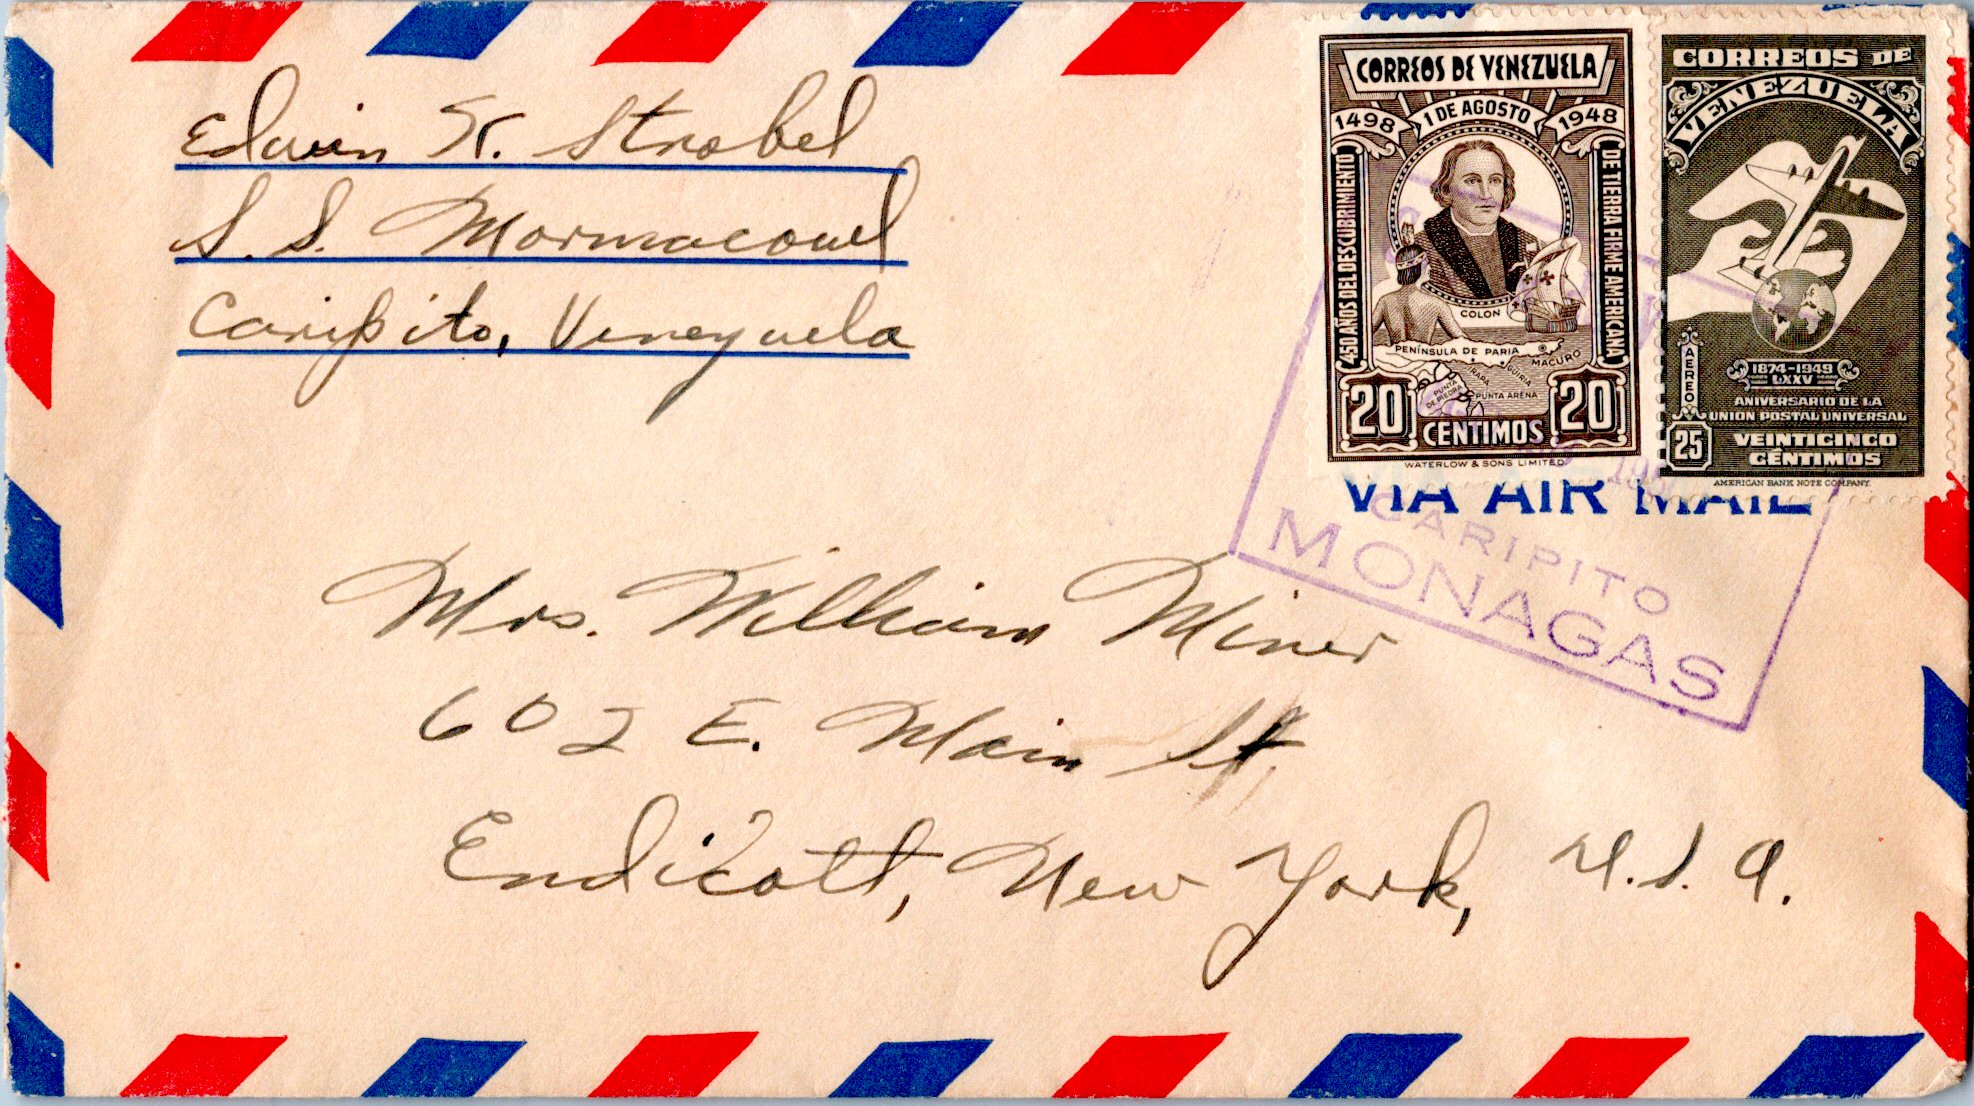 Edwin K. Strobel
S. S. Mormacowl
Caripito, Venezuela
CORREOS DE VENEZUELA
1498 1 DE AGOSTO 1948
450 AÑOS DEL DESCUBRIMIENTO
DE TIERRA FIRME AMERICANA
COLON
PENÍNSULA DE PARIA
MACURO
GÜIRIA
IRAPA
PUNTA DE PIEDRA
PUNTA ARENA
20 CENTIMOS 20
WATERLOW & SONS LIMITED
CORREOS DE
VENEZUELA
AEREO
1874-1949
LXXV
ANIVERSARIO DE LA
UNION POSTAL UNIVERSAL
25 VEINTICINCO
CÉNTIMOS
AMERICAN BANK NOTE COMPANY.
VIA AIR MAIL
CARIPITO
MONAGAS
Mrs. William Miner
602 E. Main St,
Endicott, New York, U.S.A.